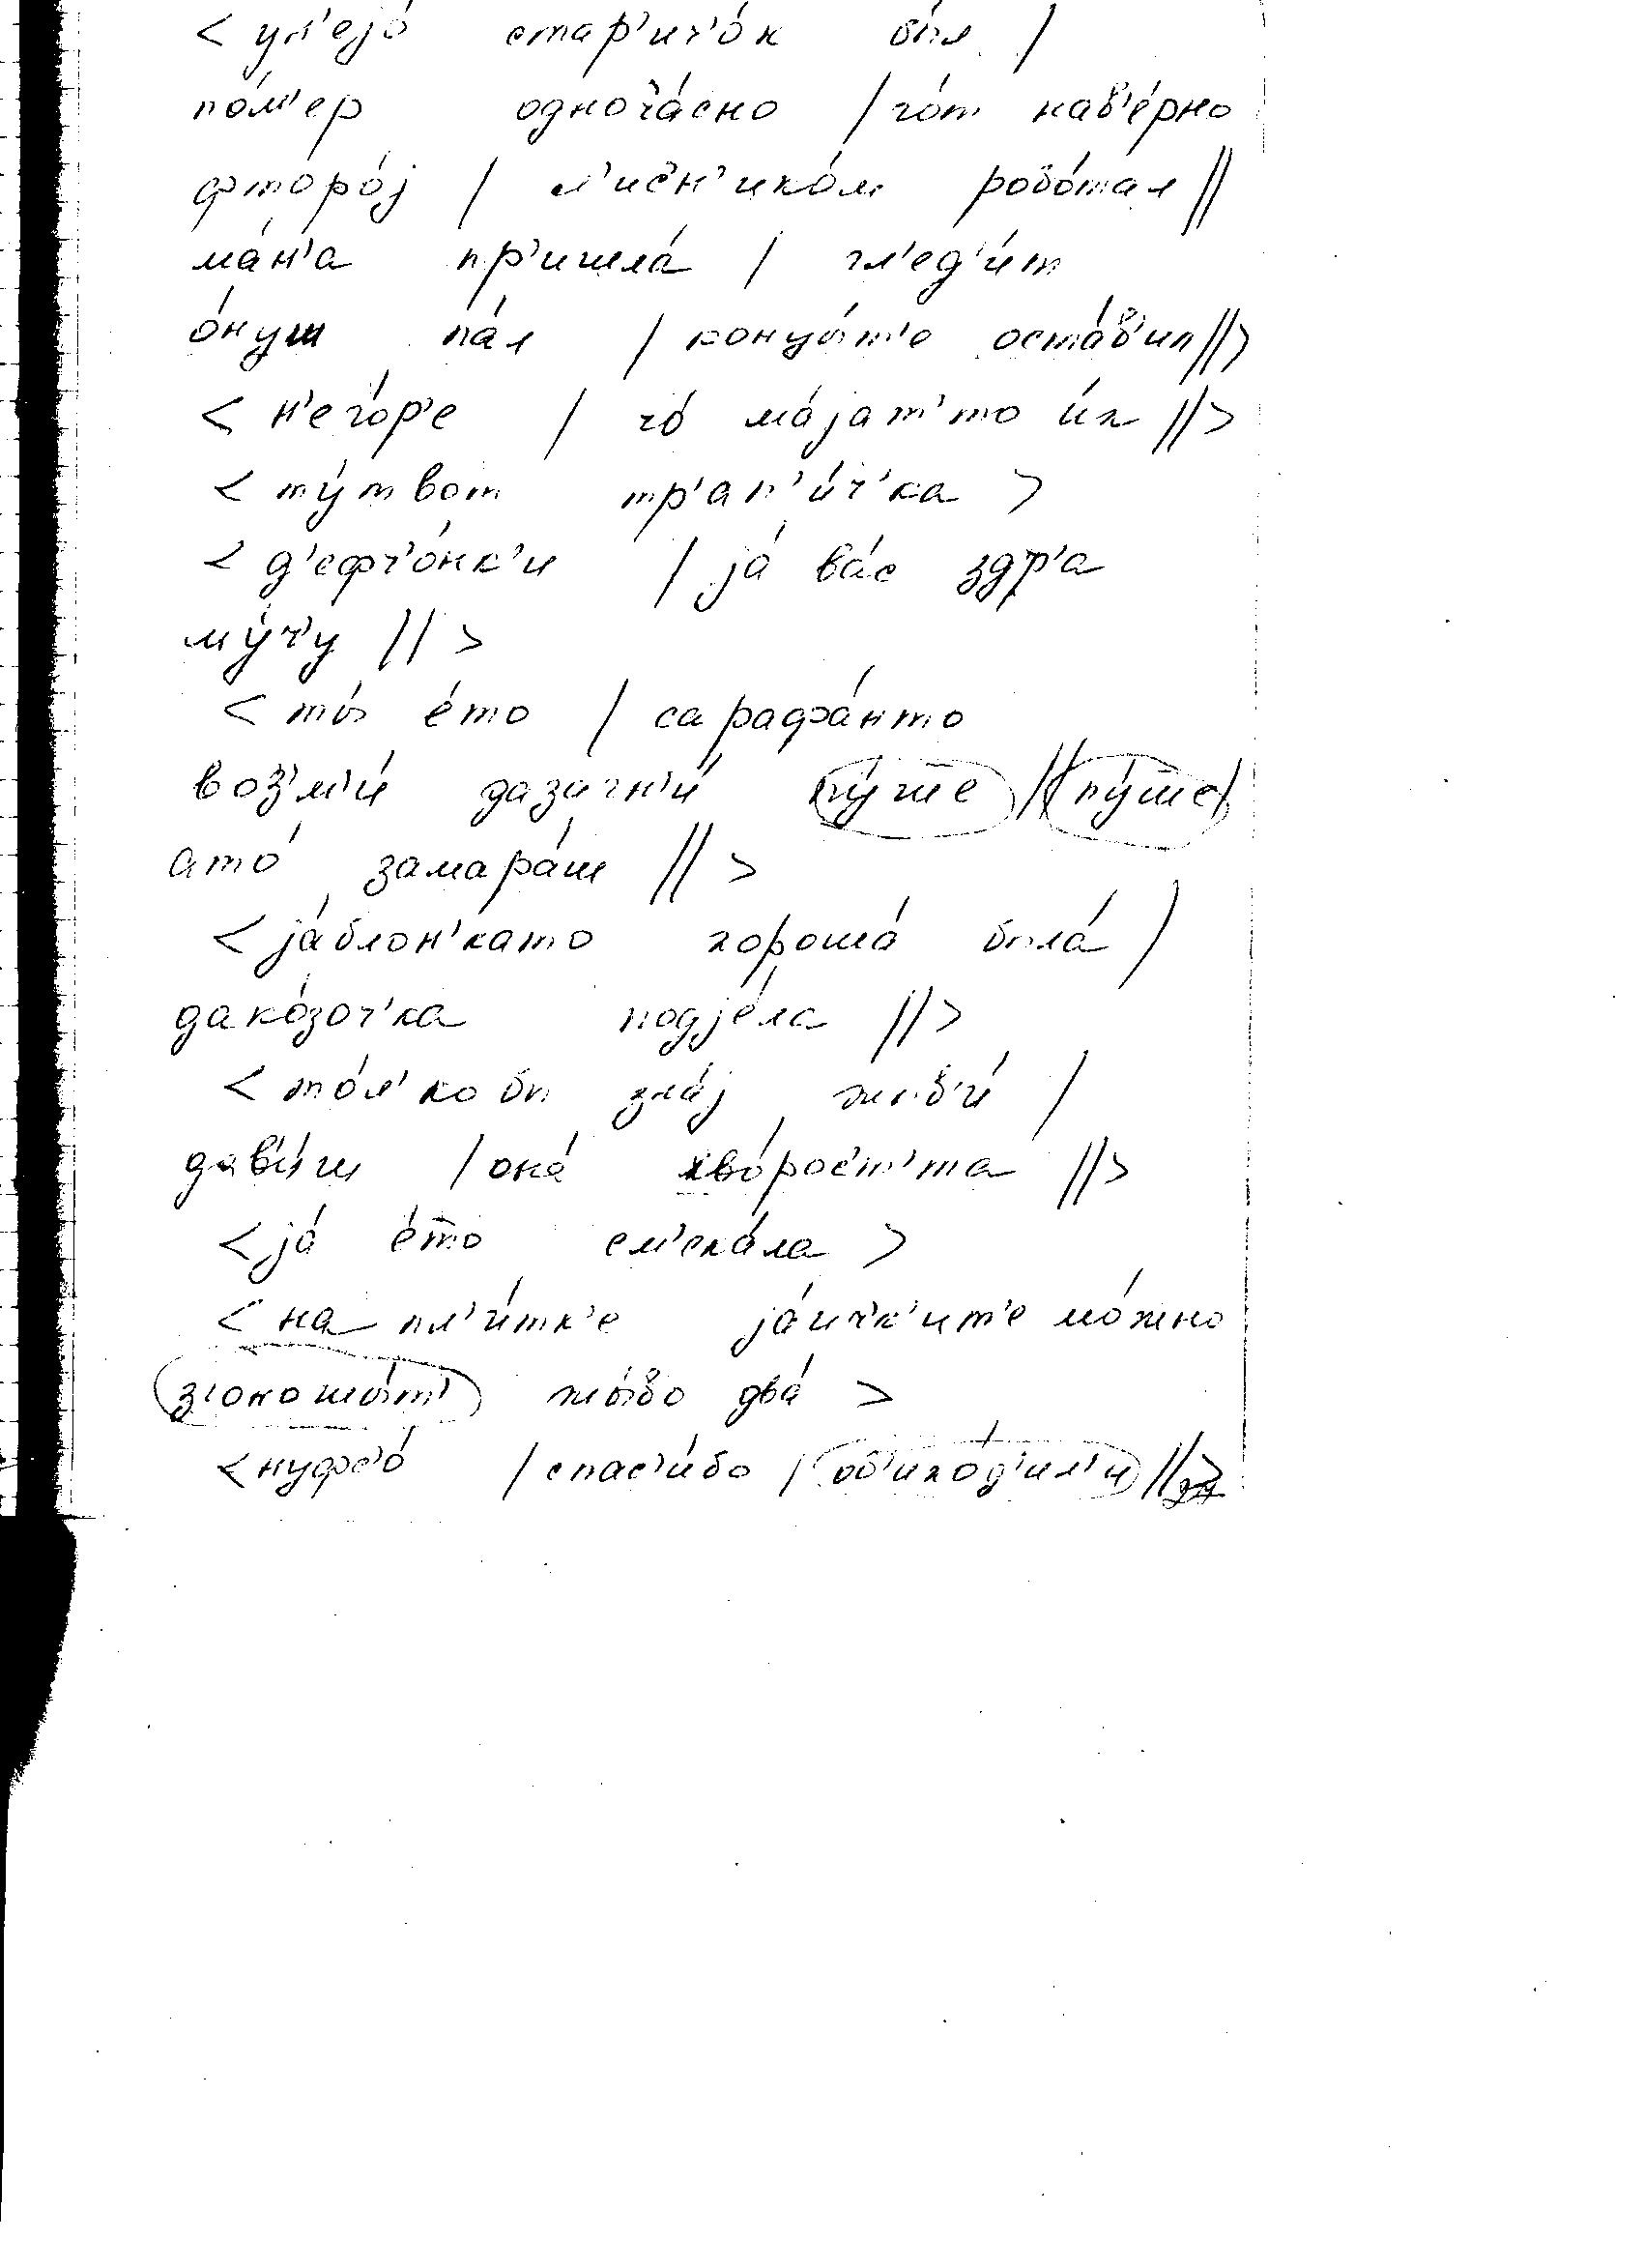 < ун'ејо́ стар'ич'о́к бы́л /
по́м'ер одноча́сно / го́т нав'е́рно
фторо́ј / л'иĉн'ико́м робо́тал //
ма́н'а пр'ишла́ / гл'ед'и́т
о́нуш па́л / концы́т'е оста́в'ил // >
< н'его́р'е / чо́ ма́јат'то и́х // >
< ту́твот тр'ап'и́ч'ка >
< д'ефч'о́нк'и / ја́ ва́с здр'а
му́ч'у // >
< ты́ е́то / сарафа́нто
воз'м'и́ дазачн'и́ пу́ш̄е // пу́ш̄е /
ато́ замара́ш // >
< ја́блон'като хороша́ была́ /
дако́зоч'ка подје́ла // >
< то́л'ко бы зла́ј жыв'и́ /
давы́ш / она́ хво́рос'т'та // >
< ја́ е́т̄о см'ека́ла >
< на пл'и́тк'е ја́ич'к'ит'е мо́жно
з'окошы́т' жы́во два́ >
< нуфс'о́ / спас'и́бо / об'ихо́д'ил'и // >